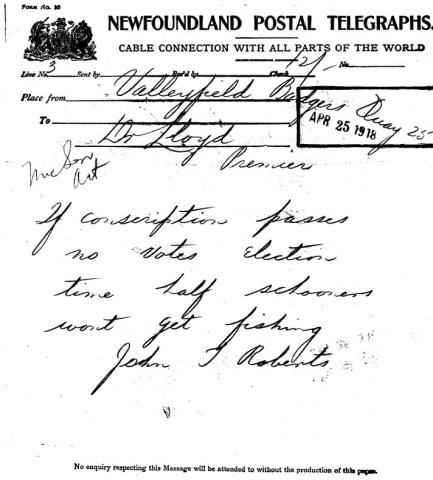 FORM No. 16
NEWFOUNDLAND POSTAL TELEGRAPHS.
CABLE CONNECTION WITH ALL PARTS OF THE WORLD
Line No. 3 Sent by Rec'd by Check 12/ No.
Place from Valleyfield Badgers Quay 25
APR 25 1918
To Dr Lloyd
Premier
If conscription passes
no votes Election
time half schooners
wont get fishing
John T Roberts
No enquiry respecting this Message will be attended to without the production of this paper.